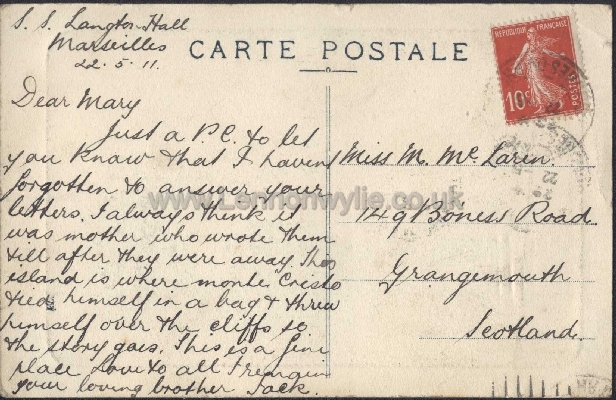 S. S. Langton Hall
Marseilles
22.5.11.
CARTE POSTALE
REPUBLIQUE FRANÇAISE
10c
POSTES
Dear Mary
Just a P.C. to let
you know that I havent
forgotten to answer your
letters. I always think it
was mother who wrote them
till after they were away. This
island is where monte Cristo
tied himself in a bag & threw
himself over the cliffs so
the story goes. This is a fine
place Love to all I remain
your loving brother Jack.
Miss M. Mc Larin.
149 Boness Road.
Grangemouth
Scotland.
www.Lennonwylie.co.uk